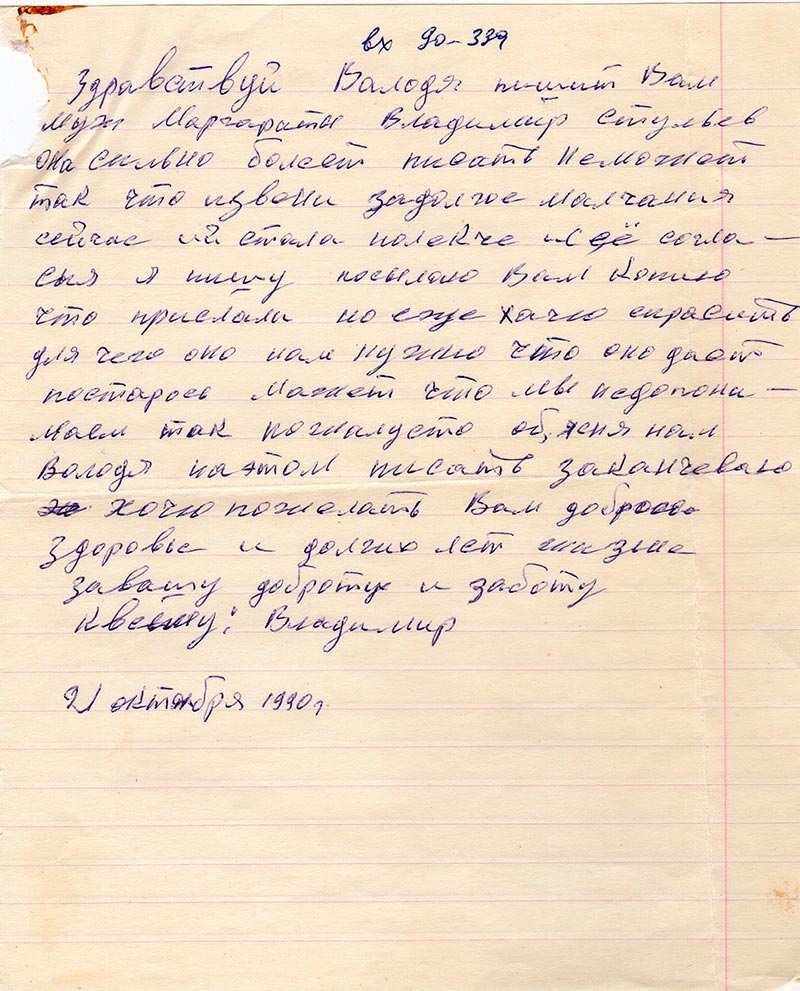 вх 90-339
Здравствуй Валодя пишит Вам
муж Маргараты Владимир Стульев
она сильно болеет писать неможет
так что извени задолгое малчания
сейчас ий стала полекче и с её согла-
сыя я пишу посылаю Вам Копию
что прислали но еже хачю спрасить
для чего оно нам нужно что оно даст
постарось Мажет что мы недопони-
маем так пожалусто обясня нам
Володя наэтом писать заканчеваю
хочю пожелать Вам доброго
здоровье и долгих лет жизне
завашу доброту и заботу
Владимир
21 октября 1990г